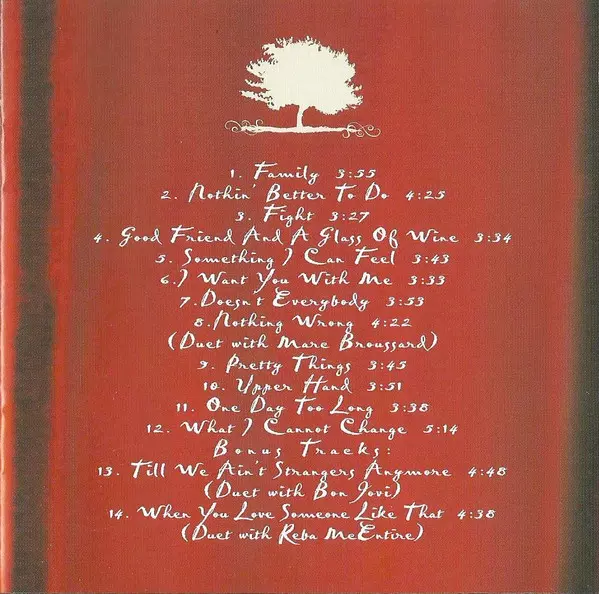 1. Family 3:55
2. Nothin' Better To Do 4:25
3. Fight 3:27
4. Good Friend And A Glass Of Wine 3:34
5. Something I Can Feel 3:43
6. I Want You With Me 3:33
7. Doesn't Everybody 3:53
8. Nothing Wrong 4:22
(Duet with Marc Broussard)
9. Pretty Things 3:45
10. Upper Hand 3:51
11. One Day Too Long 3:38
12. What I Cannot Change 5:14
Bonus Tracks:
13. Till We Ain't Strangers Anymore 4:48
(Duet with Bon Jovi)
14. When You Love Someone Like That 4:38
(Duet with Reba McEntire)